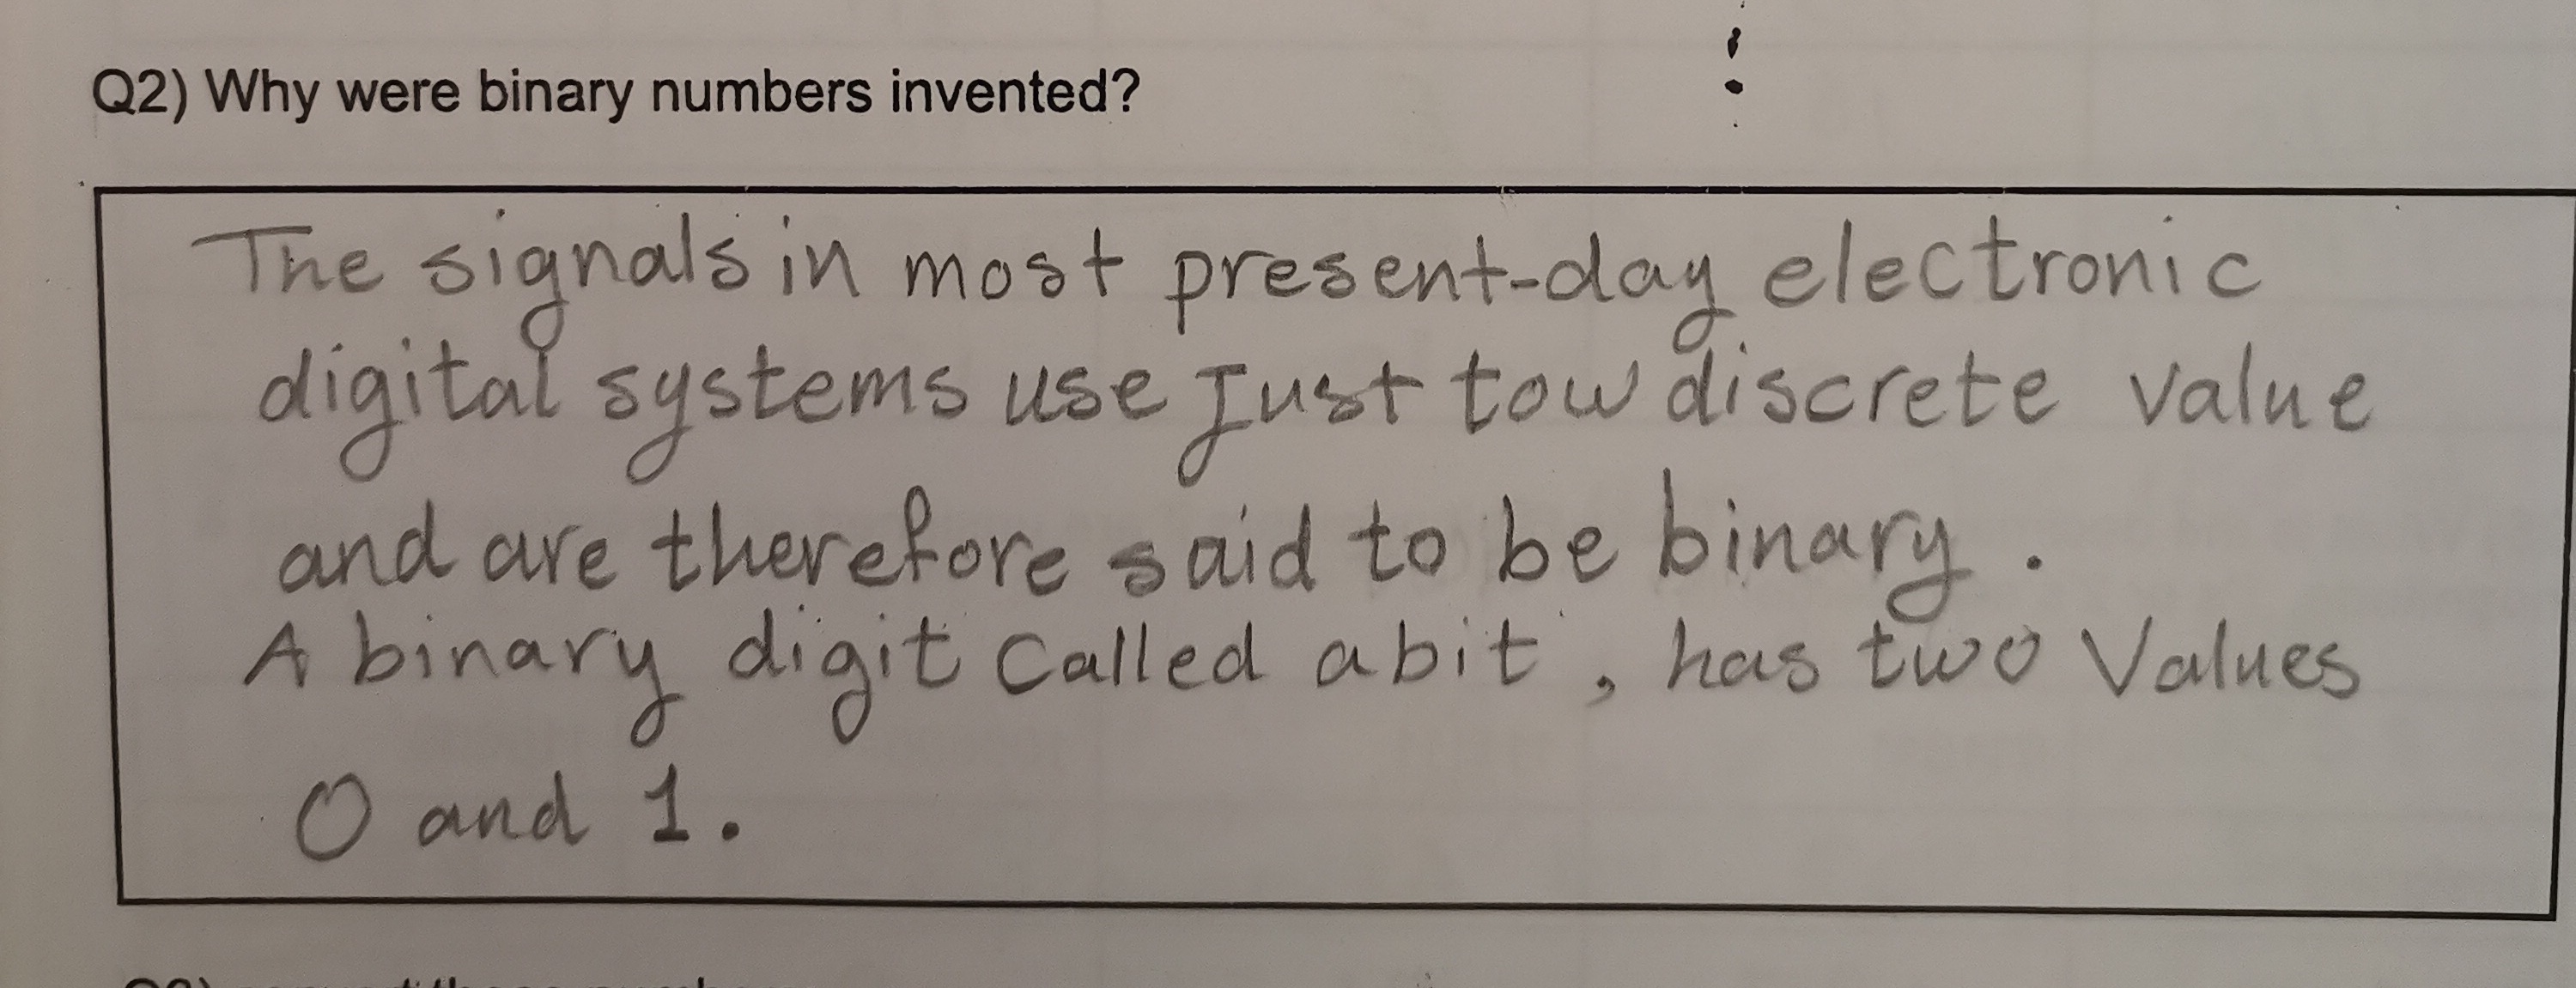 Q2) Why were binary numbers invented?
The signals in most present-day electronic
digital systems use Just tow discrete value
and are therefore said to be binary.
A binary digit Called a bit, has two Values
0 and 1.